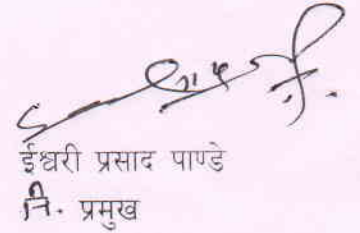 ईश्वरी प्रसाद पाण्डे
नि. प्रमुख